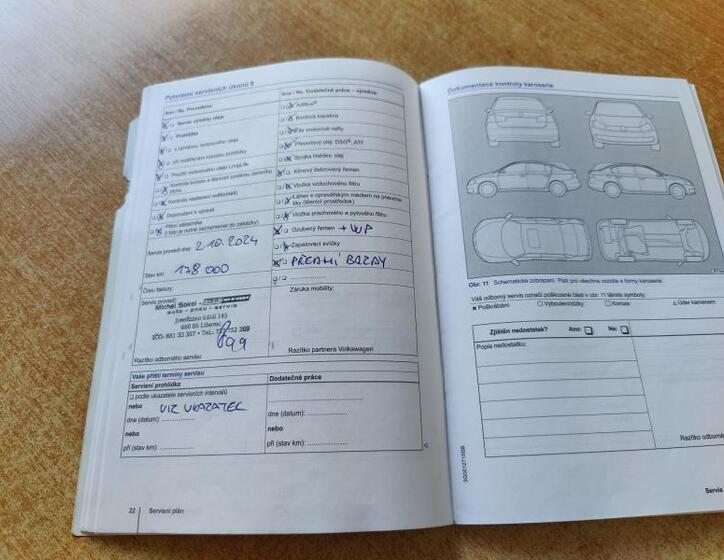 Potvrzení servisních úkonů 6
Ano / Ne, Provedeno:
Servis výměny oleje
Prohlídka
s výměnou motorového oleje
při rozšířeném rozsahu prohlídky
Použití motorového oleje LongLife
Kontrola kotace a těsnosti systému zemního plynu
Kontrola nastavení světlometů
Doporučení k opravě
Přání zákazníka
(i toto je nutné zaznamenat do zakázky)
Servis proveďl dne: 2.10.2024
Stav km: 178 000
Číslo faktury:
Servis provedl:
Michal Sokol -
auto - pneu - servis
Josefínino údolí 145
460 05 Liberec
Razítko odborného servisu
Ano / Ne, Dodatečné práce – výměna:
AdBlue®
Brzdová kapalina
Filtr motorové nafty
Převodový olej: DSG®, ATF
Spojka Haldex: olej
Klínový žebrovaný řemen
Vložka vzduchového filtru
Vložka prachového a pylového filtru
Ozubený řemen + WP
Zapalovací svíčky
PŘEDNÍ BRZDY
Záruka mobility:
Razítko partnera Volkswagen
Vaše příští termíny servisu
Servisní prohlídka
podle ukazatele servisních intervalů
nebo VIZ UKAZATEL
dne (datum):
nebo
při (stav km):
Dodatečné práce
dne (datum):
nebo
při (stav km):
22 Servisní plán
Dokumentace kontroly karoserie
Obr. 11 Schematické zobrazení. Platí pro všechna vozidla a formy karoserie.
Váš odborný servis označí poškozené části v obr. 11 těmito symboly:
× Poškrábání ○ Vyboulení/důlky □ Koroze △ Úder kamenem
Zjištěn nedostatek? Ano: Ne:
Popis nedostatku:
Razítko odborné
Servis